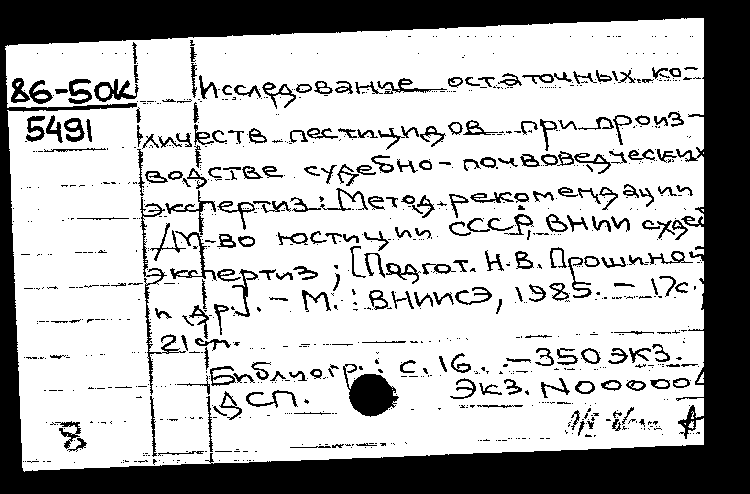 86-50К
5491
Исследование остаточных ко-
личеств пестицидов при произ-
водстве судебно-почвоведческих
экспертиз: Метод. рекомендации
/М-во юстиции СССР, ВНИИ судеб
экспертиз; [Подгот. Н.В. Прошиной
и др.]. – М.: ВНИИСЭ, 1985. – 17с.;
21см.
Библиогр.: с. 16. – 350 экз.
ДСП. Экз. N000004
8